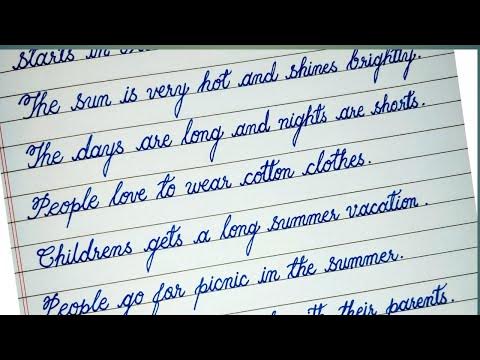 starts in
The sun is very hot and shines brightly.
The days are long and nights are shorts.
People love to wear cotton clothes.
Childrens gets a long summer vacation.
People go for picnic in the summer.
their parents.